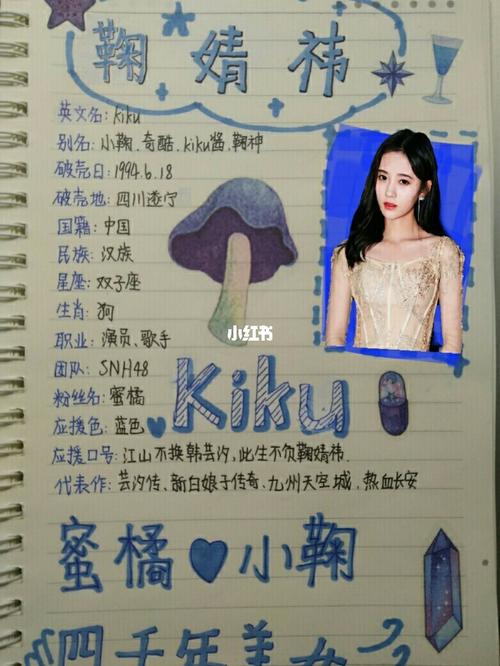 鞠婧祎
英文名: kiku
别名: 小鞠、奇酷、kiku酱、鞠神
破壳日: 1994.6.18
破壳地: 四川遂宁
国籍: 中国
民族: 汉族
星座: 双子座
生肖: 狗
职业: 演员、歌手
团队: SNH48
粉丝名: 蜜橘
应援色: 蓝色
应援口号: 江山不换韩芸汐,此生不负鞠婧祎.
代表作: 芸汐传、新白娘子传奇、九州天空城、热血长安
小红书
Kiku
蜜橘 小鞠
四千年美女